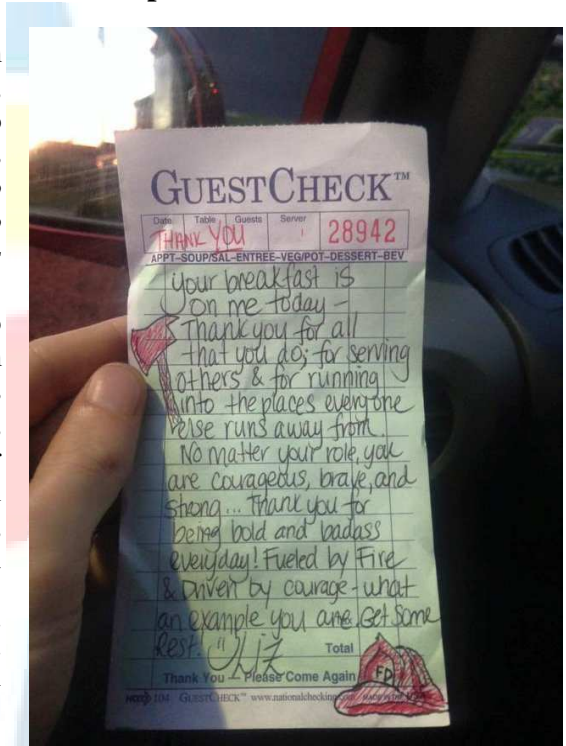 GUESTCHECK™
Date Table Guests Server
THANK YOU 28942
APPT–SOUP/SAL–ENTREE–VEG/POT–DESSERT–BEV
your breakfast is
on me today –
Thank you for all
that you do; for serving
others & for running
into the places everyone
else runs away from
No matter your role, you
are courageous, brave, and
strong... Thank you for
being bold and badass
everyday! Fueled by Fire
& Driven by courage - what
an example you are. Get some
Rest! Liz
Total
FD
Thank You – Please Come Again
104 GUESTCHECK™ www.nationalchecking